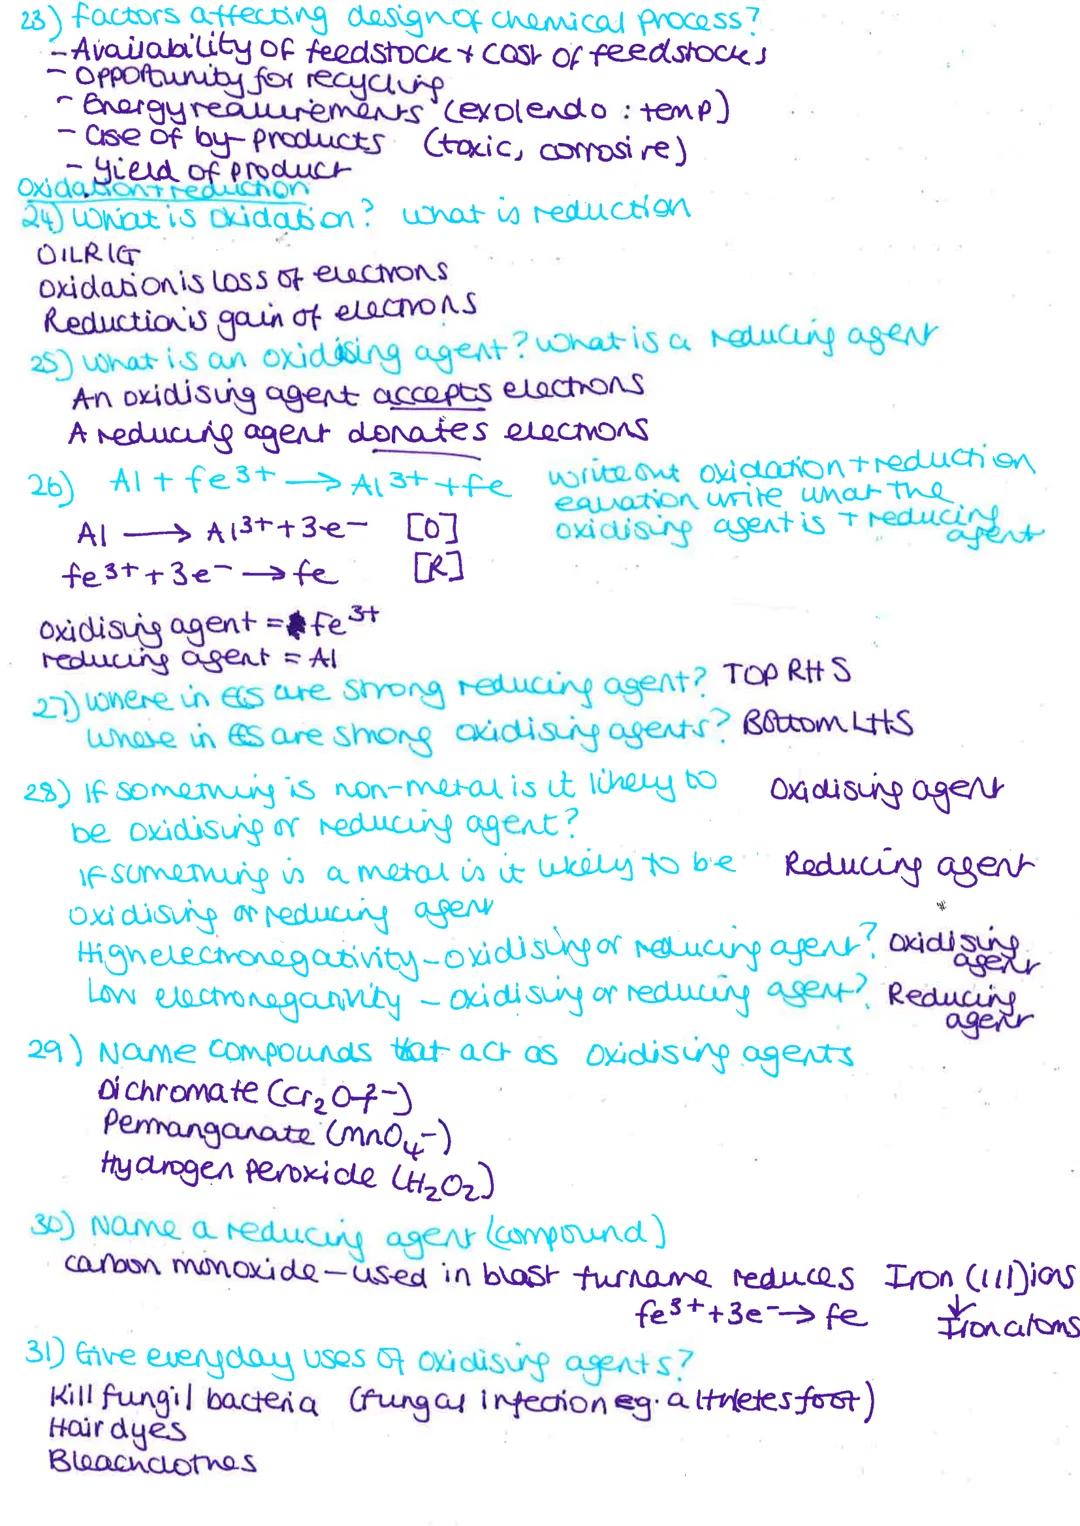 23) factors affecting design of chemical process?
- Availability of feedstock + cost of feedstocks
- Opportunity for recycling
- Energy requirements (exo/endo : temp)
- Use of by-products (toxic, corrosive)
- yield of product
Oxidation + reduction
24) What is oxidation? what is reduction
OILRIG
oxidation is loss of electrons
Reduction is gain of electrons
25) what is an oxidising agent? what is a reducing agent
An oxidising agent accepts electrons
A reducing agent donates electrons
26) Al + fe³⁺ → Al³⁺ + fe write out oxidation + reduction
equation write what the
oxidising agent is + reducing
agent
Al → Al³⁺ + 3e⁻ [O]
fe³⁺ + 3e⁻ → fe [R]
oxidising agent = Fe³⁺
reducing agent = Al
27) where in ECS are strong reducing agent? TOP RHS
where in ES are strong oxidising agents? Bottom LHS
28) If something is non-metal is it likely to Oxidising agent
be oxidising or reducing agent?
If something is a metal is it likely to be Reducing agent
oxidising or reducing agent
High electronegativity - oxidising or reducing agent? oxidising
agent
Low electronegativity - oxidising or reducing agent? Reducing
agent
29) Name compounds that act as oxidising agents
Dichromate (Cr₂O₇²⁻)
Permanganate (mnO₄⁻)
Hydrogen peroxide (H₂O₂)
30) Name a reducing agent (compound)
carbon monoxide - used in blast furname reduces Iron (III) ions
fe³⁺ + 3e⁻ → fe ↓ Iron atoms
31) Give everyday uses of oxidising agents?
Kill fungi/bacteria (fungal infection eg. althletes foot)
Hair dyes
Bleach clothes